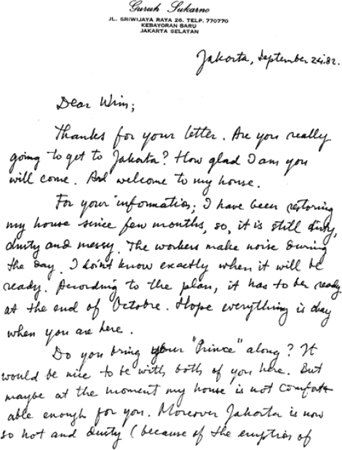 Guruh Sukarno
JL. SRIWIJAYA RAYA 26. TELP. 770770
KEBAYORAN BARU
JAKARTA SELATAN
Jakarta, September 24.82.
Dear Wim;
Thanks for your letter. Are you really
going to get to Jakarta? How glad I am you
will come. And welcome to my house.
For your information, I have been restoring
my house since few months, so, it is still dirty,
dusty and messy. The workers make noise during
the day. I don't know exactly when it will be
ready. According to the plan, it has to be ready
at the end of Octobre. Hope everything is okay
when you are here.
Do you bring your "Prince" along? It
would be nice to be with both of you here. But
maybe at the moment my house is not comfort-
able enough for you. Moreover Jakarta is now
so hot and dusty (because of the eruption of